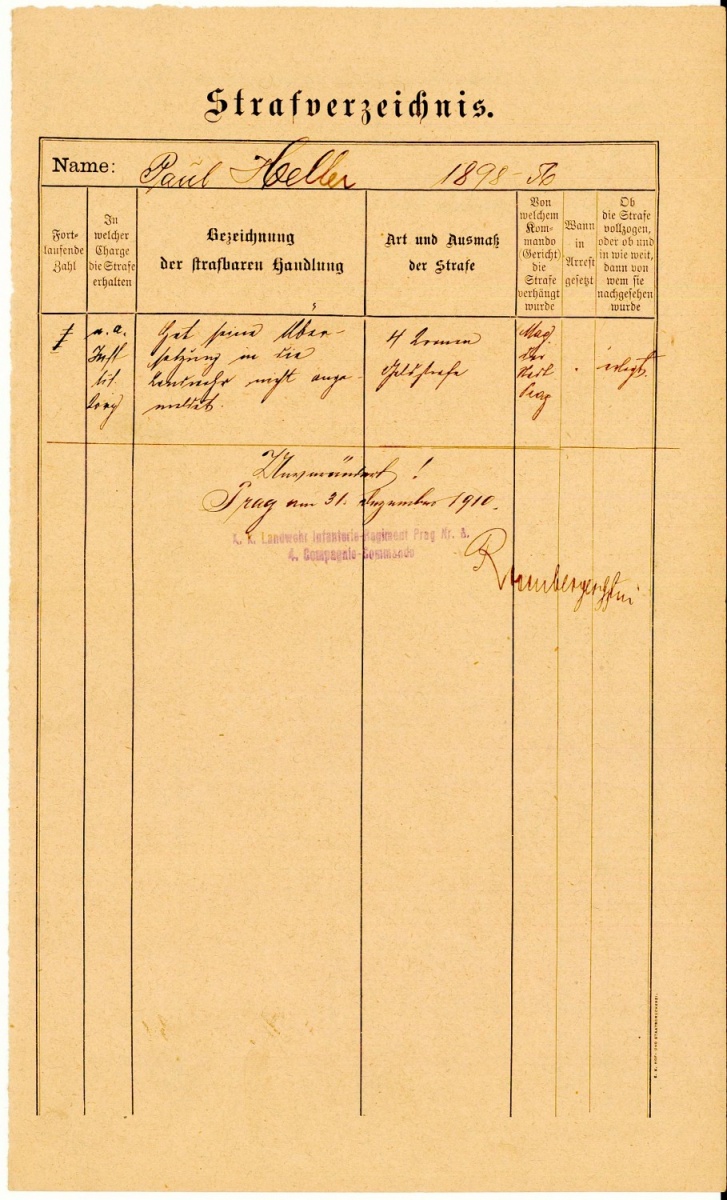 Strafverzeichnis.
Name: Paul Heller 1898
Fort-
laufende
Zahl
In
welcher
Charge
die Strafe
erhalten
Bezeichnung
der strafbaren Handlung
Art und Ausmaß
der Strafe
Von
welchem
Kom-
mando
(Gericht)
die
Strafe
verhängt
wurde
Wann
in
Arrest
gesetzt
Ob
die Strafe
vollzogen,
oder ob und
in wie weit,
dann von
wem sie
nachgesehen
wurde
Hat seine Über-
setzung in die
Landwehr nicht ange-
meldet.
4 Kronen
Geldstrafe
Mag.
der
Stadt
Prag
erlegt.
Prag am 31. Dezember 1910.
K. k. Landwehr Infanterie-Regiment Prag Nr. 8.
4. Compagnie-Commando